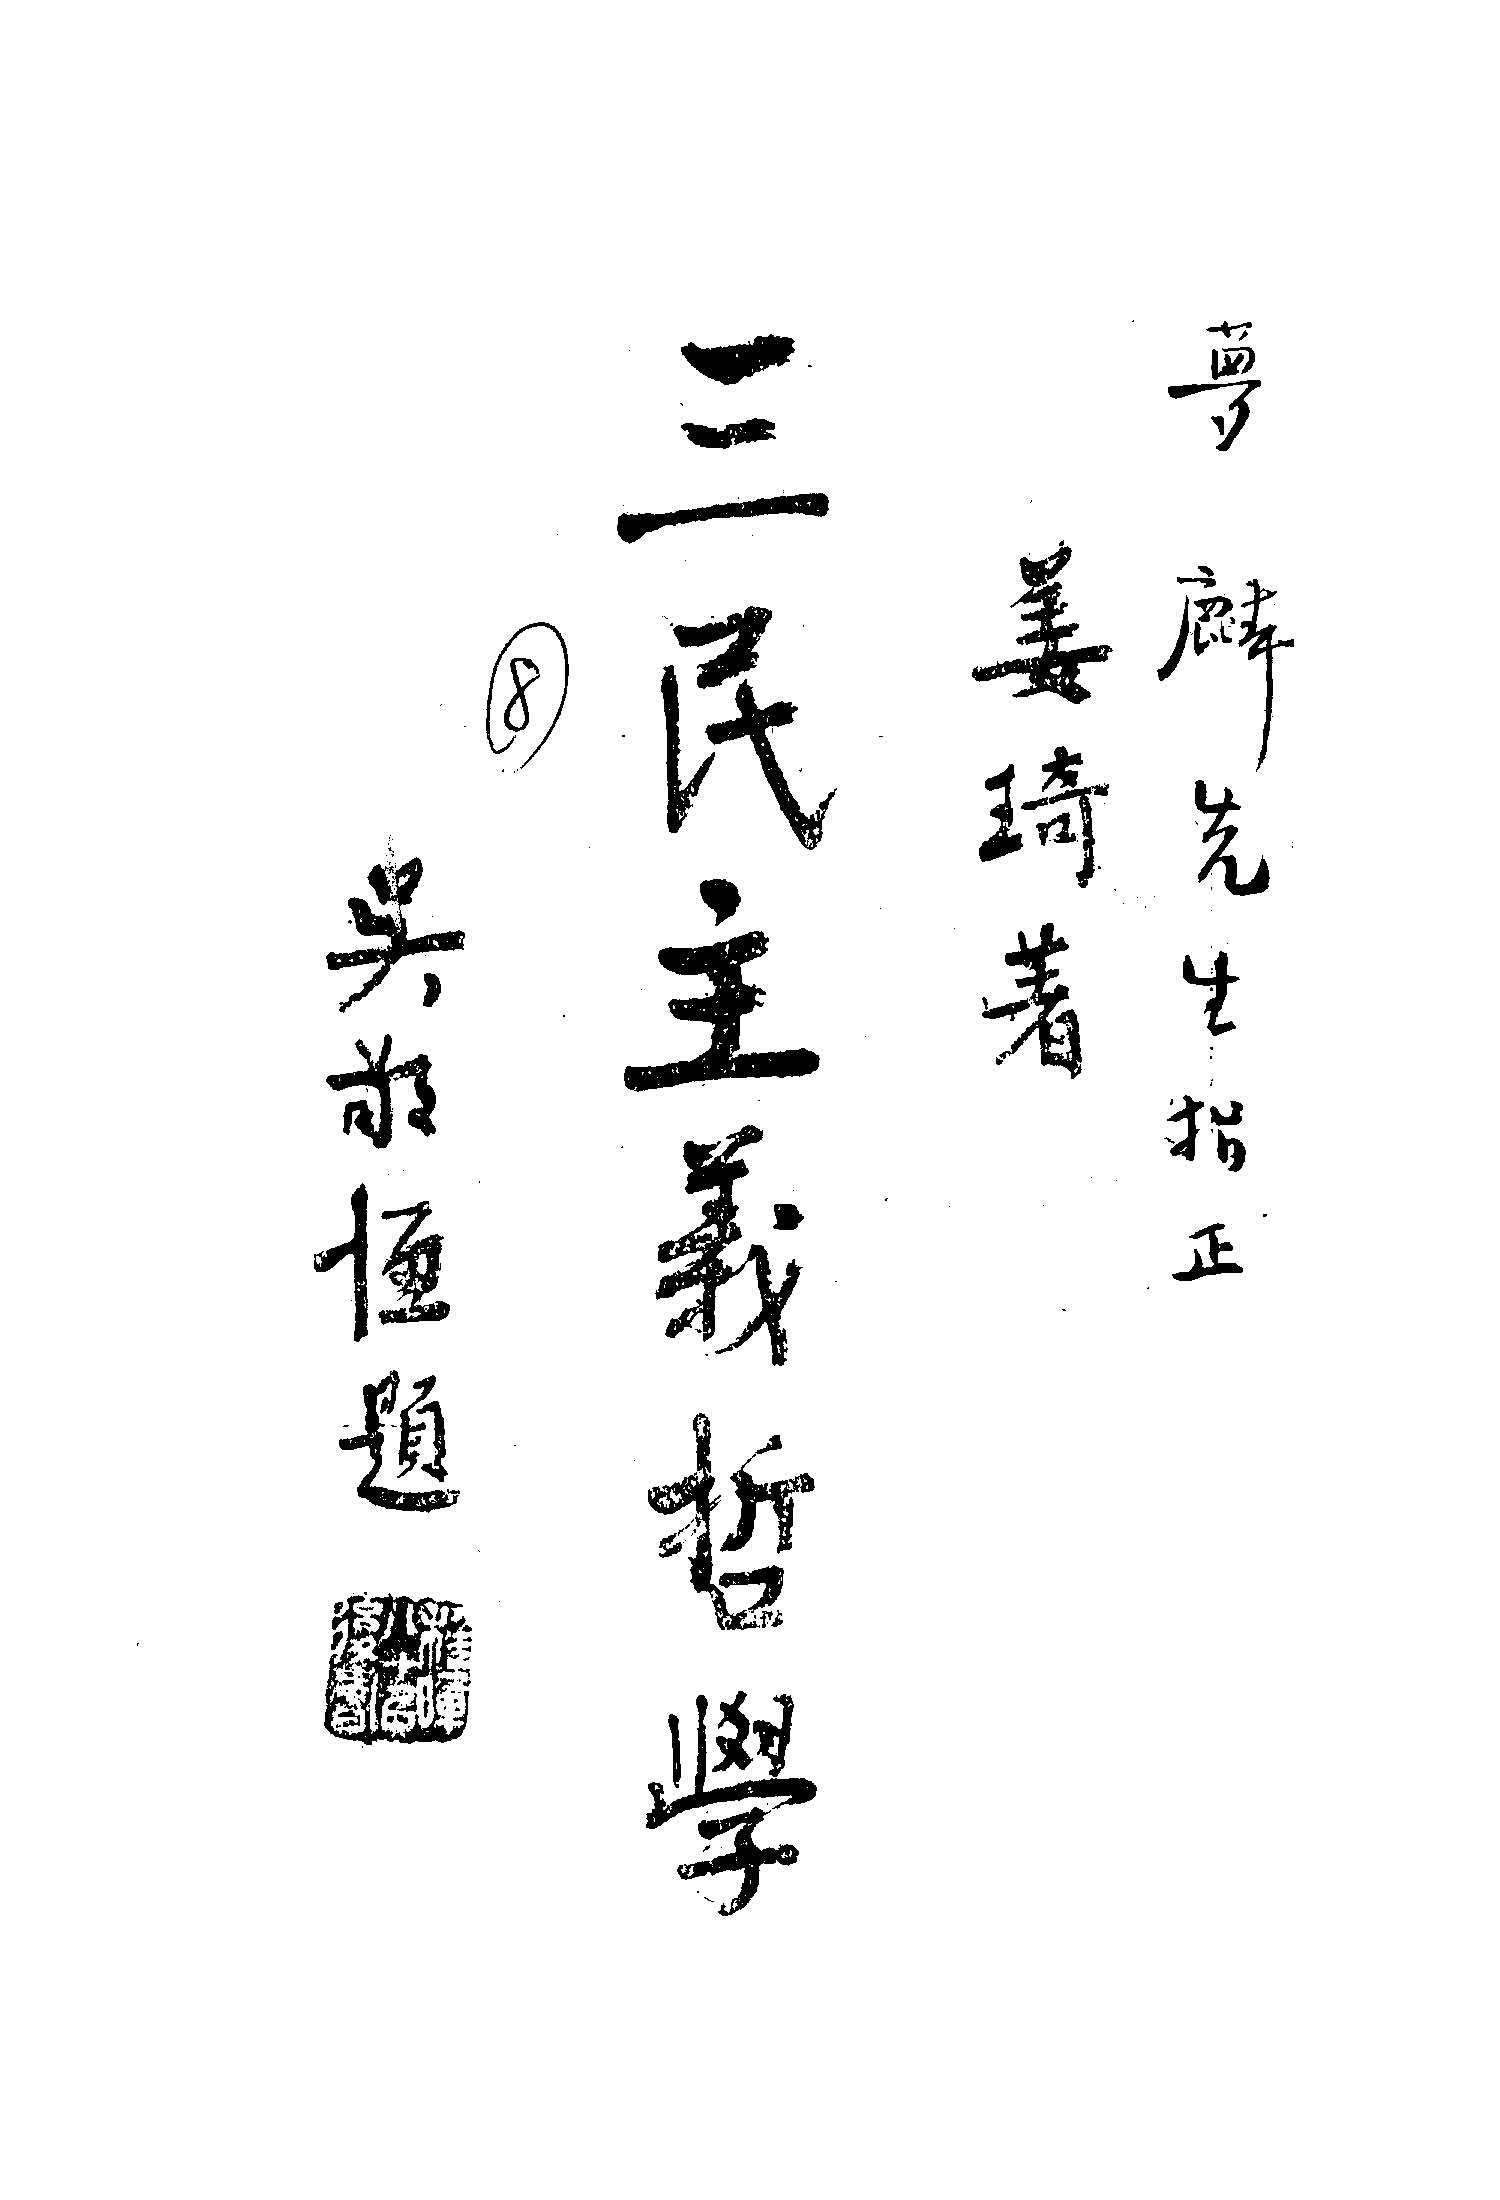 夢麟先生指正
姜琦著
三民主義哲學
⑧
吳敬恆題